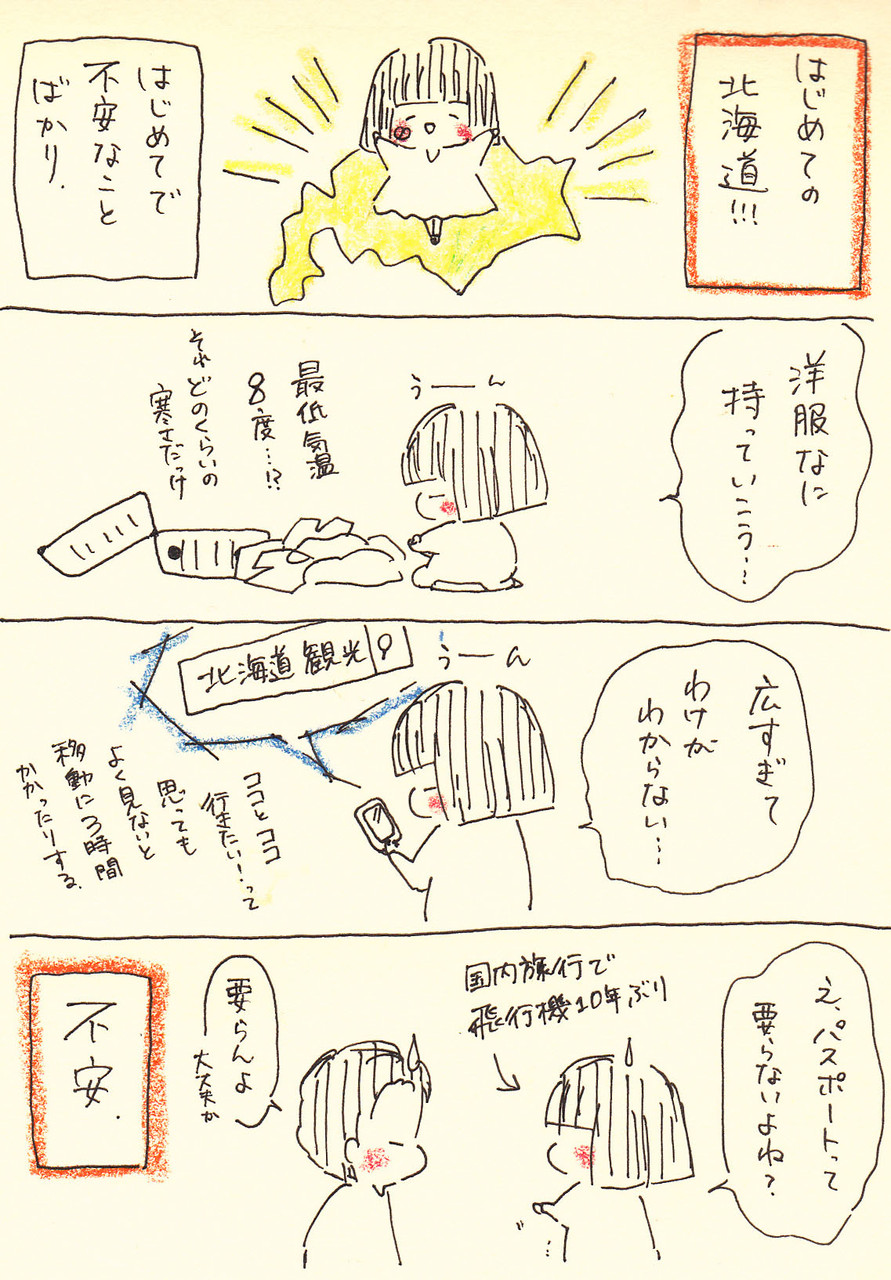 はじめての
北海道!!!
はじめてで
不安なこと
ばかり.
洋服なに
持っていこう…
うーん
最低気温
8度…!?
それどのくらいの
寒さだっけ
広すぎて
わけが
わからない…
うーん
北海道観光
ココとココ
行きたい!って
思っても
よく見ないと
移動に3時間
かかったりする.
え、パスポートって
要らないよね?
国内旅行で
飛行機10年ぶり
要らんよ
大丈夫か
不安.